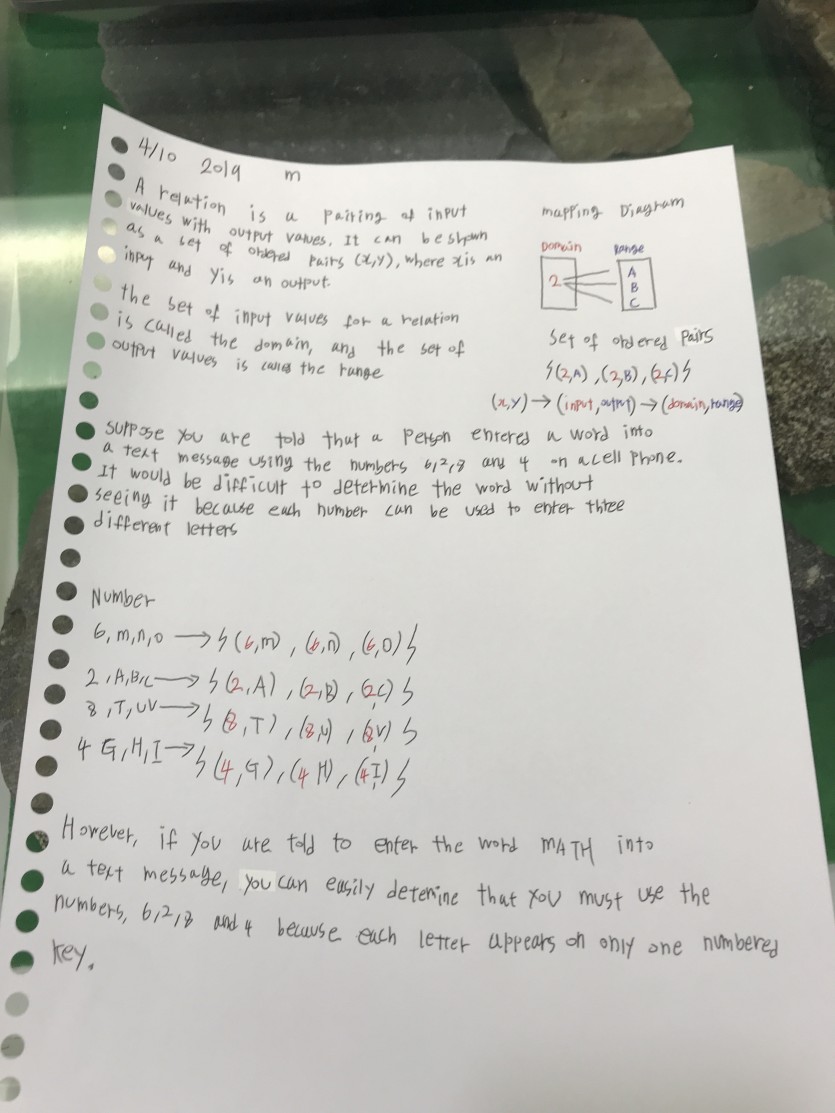 4/10 2019 m
A relation is a pairing of input
values with output values. It can be shown
as a set of ordered pairs (x,y), where x is an
input and y is an output.
the set of input values for a relation
is called the domain, and the set of
output values is called the range
mapping Diagram
Domain Range
2 A
B
C
Set of ordered Pairs
{(2,A),(2,B),(2,C)}
(x,y)→(input,output)→(domain,range)
suppose you are told that a person entered a word into
a text message using the numbers 6,2,8 and 4 on a cell phone.
It would be difficult to determine the word without
seeing it because each number can be used to enter three
different letters
Number
6,m,n,o → {(6,m), (6,n), (6,O)}
2,A,B,C → {(2,A), (2,B), (2,C)}
8,T,UV → {(8,T), (8,U), (8,V)}
4 G,H,I → {(4,G),(4 H), (4,I)}
However, if you are told to enter the word MATH into
a text message, you can easily detenine that you must use the
numbers, 6,2,8 and 4 because each letter appears on only one numbered
key.